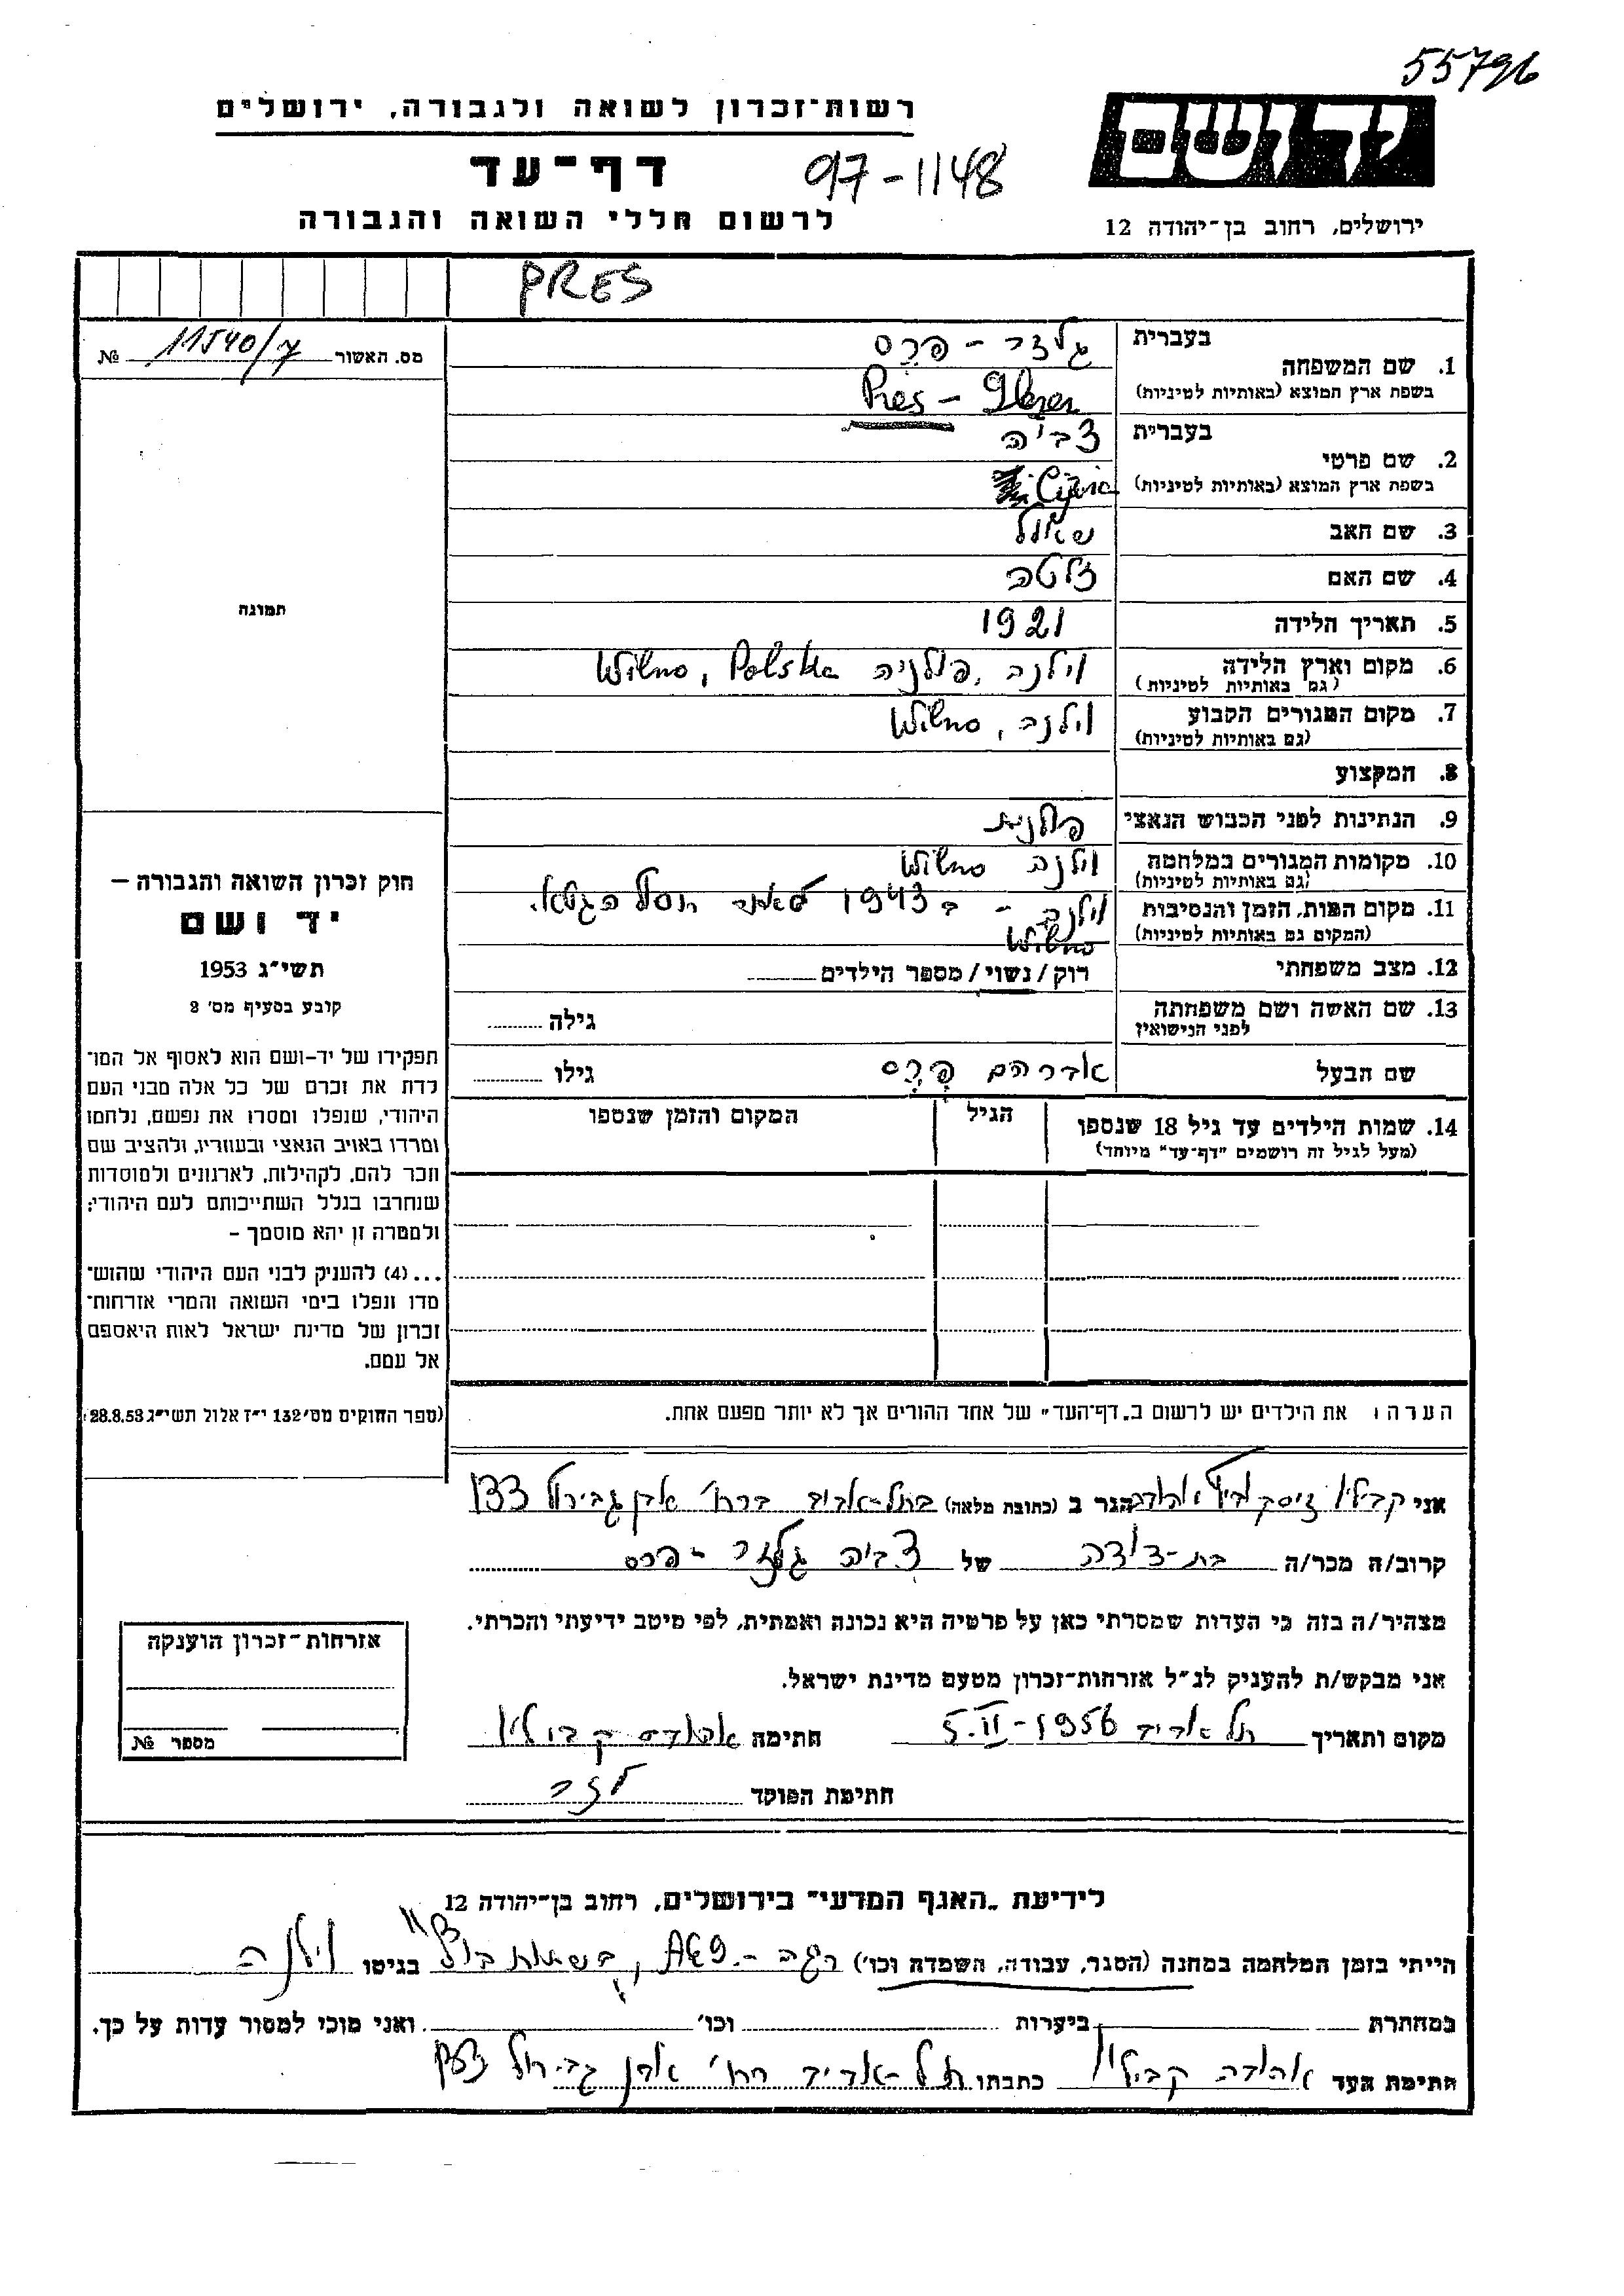 55796
רשות־זכרון לשואה ולגבורה, ירושלים
ידושם
דף־עד
97-1148
לרשום חללי השואה והגבורה
ירושלים, רחוב בן־יהודה 12
PRES
מס. האשור 11540/7 №
1. שם המשפחה
בעברית
גלזר - פרס
בשפת ארץ המוצא (באותיות לטיניות)
Pres - Glezer
2. שם פרטי
בעברית
צביה
בשפת ארץ המוצא (באותיות לטיניות)
3. שם האב שאול
4. שם האם זלטה
5. תאריך הלידה 1921
6. מקום וארץ הלידה וילנה, פולניה Wilno, Polska
(גם באותיות לטיניות)
7. מקום המגורים הקבוע וילנה, Wilno
(גם באותיות לטיניות)
8. המקצוע
9. הנתינות לפני הכבוש הנאצי פולנית
10. מקומות המגורים במלחמה וילנה Wilno
(גם באותיות לטיניות)
11. מקום המות, הזמן והנסיבות וילנה - ב 1943 חוסל הגטו.
(המקום גם באותיות לטיניות) Wilno
12. מצב משפחתי רוק/נשוי/מספר הילדים
13. שם האשה ושם משפחתה
לפני הנישואין
גילה
שם הבעל אברהם פרס גילו
14. שמות הילדים עד גיל 18 שנספו
(מעל לגיל זה רושמים "דף־עד" מיוחד)
הגיל
המקום והזמן שנספו
תמונה
חוק זכרון השואה והגבורה –
יד ושם
תשי"ג 1953
קובע בסעיף מס' 2
תפקידו של יד-ושם הוא לאסוף אל המו־
לדת את זכרם של כל אלה מבני העם
היהודי, שנפלו ומסרו את נפשם, נלחמו
ומרדו באויב הנאצי ובעוזריו, ולהציב שם
וזכר להם, לקהילות, לארגונים ולמוסדות
שנחרבו בגלל השתייכותם לעם היהודי;
ולמטרה זו יהא מוסמך –
...(4) להעניק לבני העם היהודי שהוש־
מדו ונפלו בימי השואה והמרי אזרחות־
זכרון של מדינת ישראל לאות היאספם
אל עמם.
(ספר החוקים מס' 132 י"ז אלול תשי"ג 28.8.53)
הערה: את הילדים יש לרשום ב"דף־העד" של אחד ההורים אך לא יותר מפעם אחת.
אני הגר ב (כתובת מלאה) בתל-אביב ברח' אבן גבירול 133
קרוב/ה מכר/ה בת-דודה של צביה גלזר - פרס
מצהיר/ה בזה כי העדות שמסרתי כאן על פרטיה היא נכונה ואמתית, לפי מיטב ידיעתי והכרתי.
אני מבקש/ת להעניק לנ"ל אזרחות־זכרון מטעם מדינת ישראל.
מקום ותאריך תל אביב 5.II-1956 חתימה
חתימת הפוקד
אזרחות־זכרון הוענקה
מספר №
לידיעת "האגף המדעי" בירושלים, רחוב בן־יהודה 12
הייתי בזמן המלחמה במחנה (הסגר, עבודה, השמדה וכו') ריגה - בגיטו וילנה
במחתרת ביערות וכו' ואני מוכן למסור עדות על כך.
חתימת העד כתבתו תל-אביב רח' אבן גבירול